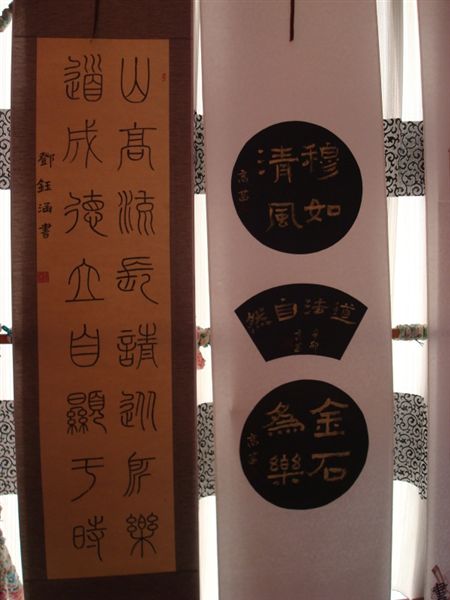 山高流長請所樂
道成德立自顯于時
鄧鈺涵書
穆如
清風
道法自然
金石
為樂